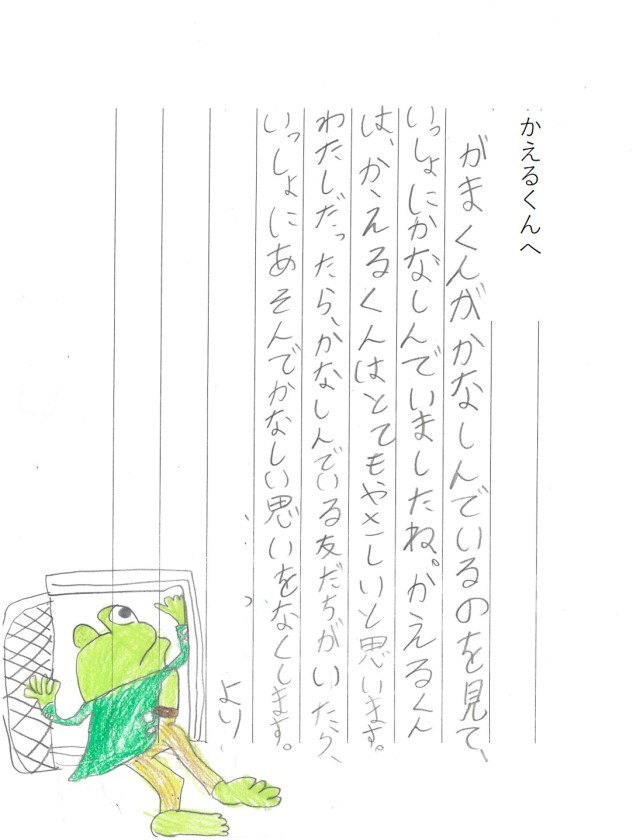 かえるくんへ
がまくんがかなしんでいるのを見て、
いっしょにかなしんでいましたね。かえるくん
は、かえるくんはとてもやさしいと思います。
わたしだったら、かなしんでいる友だちがいたら、
いっしょにあそんでかなしい思いをなくします。
より